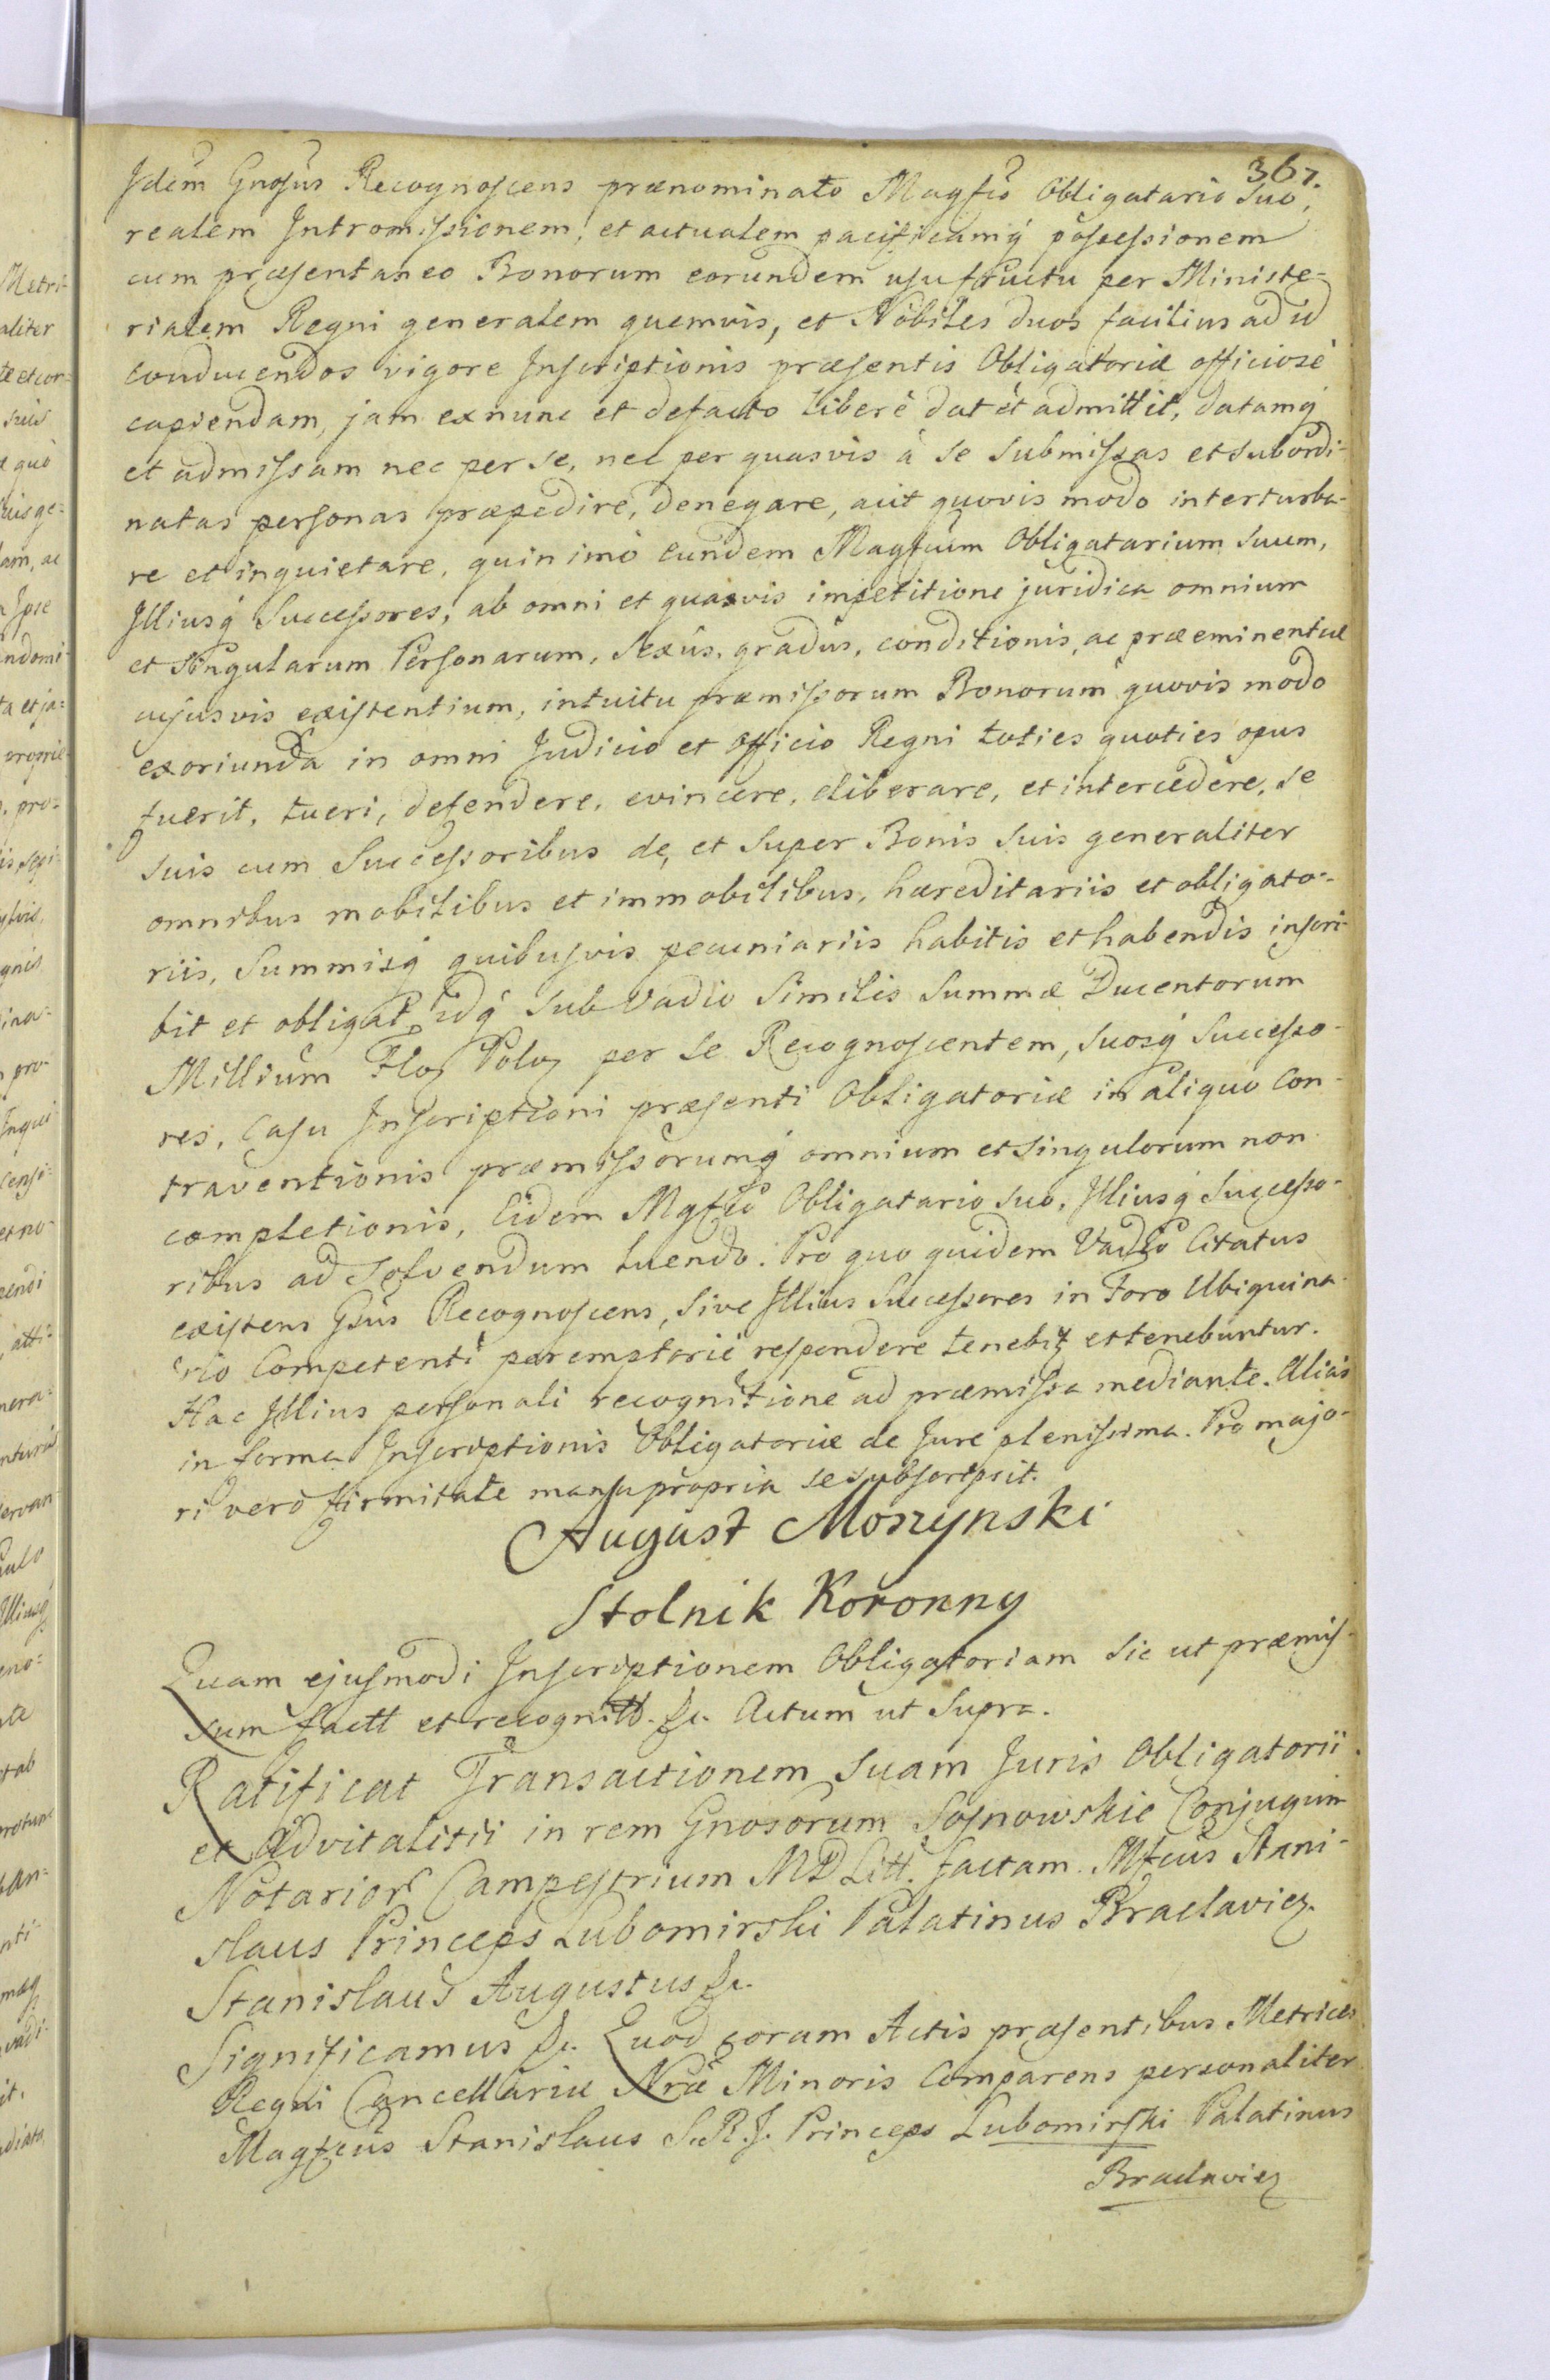 367.
Idem Gnosus Recognoscens prænominato Magfco Obligatario Suo,
realem Intromissionem, et actualem pacificamq possessionem
cum præsentaneo Bonorum eorundem usufructu per Ministe-
rialem Regni generalem quemvis, et Nobiles duos facilius ad id
conducendos vigore Inscriptionis præsentis Obligatoriæ officiosè
capiendam, jam exnunc et defacto liberè dat et admittit, datamq
et admissam nec per se, nec per quasvis à se submissas et subordi-
natas personas præpedire, denegare, aut quovis modo interturba-
re et inquietare, quinimò eundem Magfcum Obligatarium suum,
Illiusq Successores, ab omni et quasvis impetitione juridica omnium
et singularum Personarum, sexûs, gradûs, conditionis, ac præeminentiæ
cujusvis existentium, intuitu præmissorum Bonorum quovis modo
exoriunda in omni Judicio et Officio Regni toties quoties opus
fuerit, tueri, defendere, evincere, eliberare, et intercedere, se
suis cum Successoribus de, et super Bonis suis generaliter
omnibus mobilibus et immobilibus, hæreditariis et obligato-
riis, Summisq quibusvis pecuniariis habitis et habendis inscri-
bit et obligat, idq sub Vadio similis Summæ Ducentorum
Millium Flor Polor per se Recognoscentem, suosq Successo-
res, casu Inscriptioni præsenti Obligatoriæ in aliquo Con-
traventionis præmissorumq omnium et singulorum non
completionis, Eidem Mgfco Obligatario suo, Illiusq Successo-
ribus ad solvendum luendo. Pro quo quidem Vadio Citatus
existens Gsus Recognoscens, sive Illius Successores in Foro Ubiquina-
rio Competenti peremptoriè respondere tenebit et tenebuntur.
Hac Illius personali recognitione ad præmissa mediante. Alias
in forma Inscriptionis Obligatoriæ de Jure plenissima. Pro majo-
ri verò firmitate manu propria se subscripsit.
August Moszynski
Stolnik Koronny
Quam ejusmodi Inscriptionem Obligatoriam sic ut præmis-
sum factt et recognitt. &c. Actum ut Supra.
Ratificat Transactionem suam Juris Obligatorii
et Advitalitii in rem Gnosorum Sosnowskie Conjugum
Notarior Campestrium MD Litt. factam. Mfcus Stani-
slaus Princeps Lubomirski Palatinus Braclavicz.
Stanislaus Augustus &c.
Significamus &c. Quod coram Actis præsentibus Metrices
Regni Cancellariæ Nræ Minoris Comparens personaliter
Magfcus Stanislaus S.R.J. Princeps Lubomirski Palatinus
Braclavicz